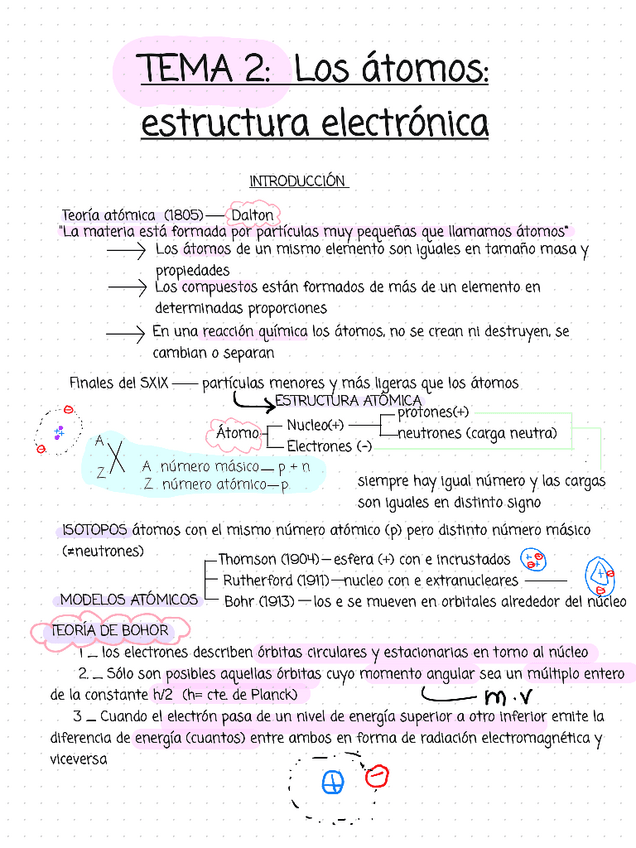 TEMA 2: Los átomos:
estructura electrónica
INTRODUCCIÓN
Teoría atómica (1805) — Dalton
"La materia está formada por partículas muy pequeñas que llamamos átomos"
→ Los átomos de un mismo elemento son iguales en tamaño masa y
propiedades
→ Los compuestos están formados de más de un elemento en
determinadas proporciones
→ En una reacción química los átomos, no se crean ni destruyen, se
cambian o separan
Finales del SXIX — partículas menores y más ligeras que los átomos
ESTRUCTURA ATÓMICA
Átomo
Nucleo(+)
protones(+)
neutrones (carga neutra)
Electrones (-)
A
X
Z
A número másico — p + n
Z número atómico — p
siempre hay igual número y las cargas
son iguales en distinto signo
ISOTOPOS átomos con el mismo número atómico (p) pero distinto número másico
(≠neutrones)
MODELOS ATÓMICOS
Thomson (1904) — esfera (+) con e incrustados
Rutherford (1911) — nucleo con e extranucleares
Bohr (1913) — los e se mueven en orbitales alrededor del núcleo
TEORÍA DE BOHOR
1 _ los electrones describen órbitas circulares y estacionarias en torno al núcleo
2. _ Sólo son posibles aquellas órbitas cuyo momento angular sea un múltiplo entero
de la constante h/2 (h= cte. de Planck)
m.v
3 _ Cuando el electrón pasa de un nivel de energía superior a otro inferior emite la
diferencia de energía (cuantos) entre ambos en forma de radiación electromagnética y
viceversa
+ −